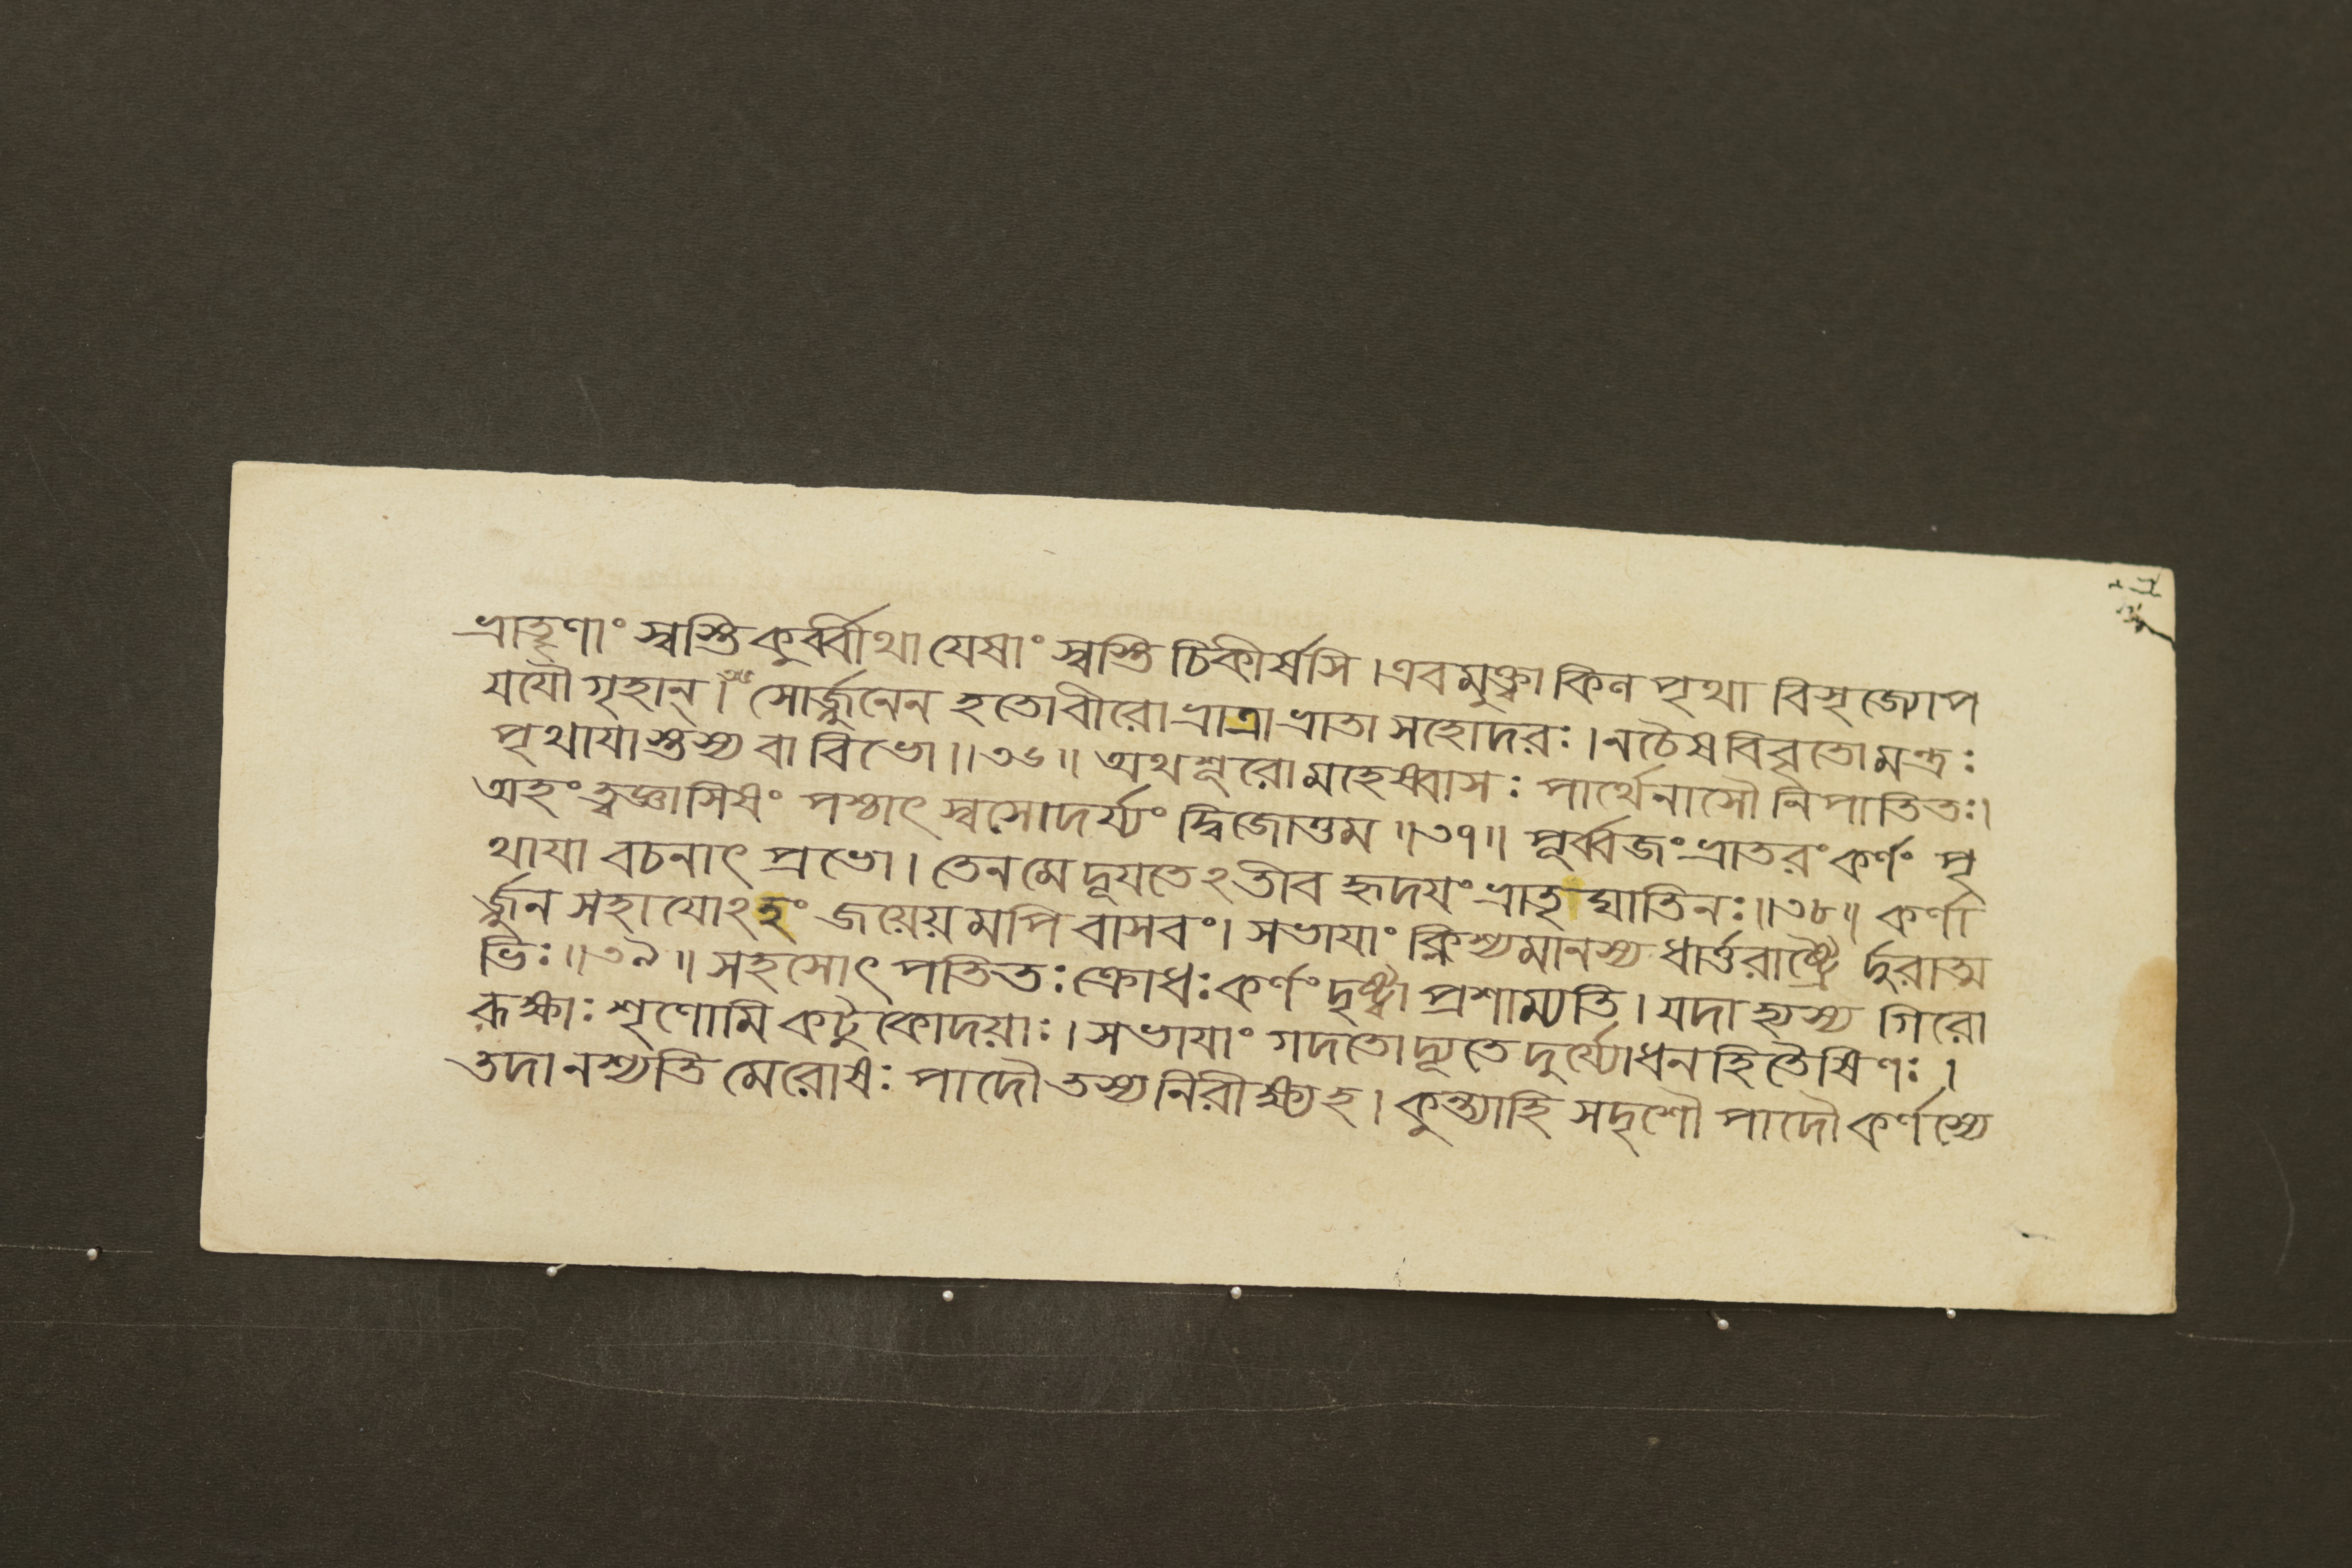 ভ্রাতৄণাং স্বস্তি কুর্ব্বীথা যেষাং স্বস্তি চিকীর্ষসি ।এবমুক্ত্বা কিন পৃথা বিসৃজ্যোপ
যযৌ গৃহান্। সোর্জ্জুনেন হতোবীরো ভ্রাত্রা ভ্রাতা সহোদরঃ ।নচৈষ বিবৃতোমন্ত্রঃ
পৃথাযাস্তস্য বা বিভো ॥৩৬॥ অথশূরো মহেষ্বাসঃ পার্থেনাসৌ নিপাতিতঃ।
অহংত্বজ্ঞাসিষং পশ্চাৎ স্বসোদর্য্যং দ্বিজোত্তম ॥৩৭॥ পূর্ব্বজং ভ্রাতরং কর্ণং পৃ
থাযা বচনাৎ প্রভো । তেনমে দূযতেঽতীব হৃদযং ভ্রাতৃঘাতিনঃ॥৩৮॥ কর্ণা
র্জ্জুন সহাযোঽহং জয়েয়মপি বাসবং। সভাযাং ক্লিশ্যমানস্য ধার্ত্তরাষ্ট্রৈ র্দুরাত্ম
ভিঃ॥৩৯॥ সহসোৎপতিতঃ ক্রোধঃ কর্ণং দৃষ্ট্বা প্রশাম্যতি । যদা হ্যস্য গিরো
রূক্ষাঃ শৃণোমি কটুকোদয়াঃ । সভাযাং গদতোদ্যূতে দুর্য্যোধনহিতৈষিণঃ ।
তদা নশ্যতি মেরোষঃ পাদৌ তস্য নিরীক্ষ্য হ । কুন্ত্যাহি সদৃশৌ পাদৌ কর্ণস্যে